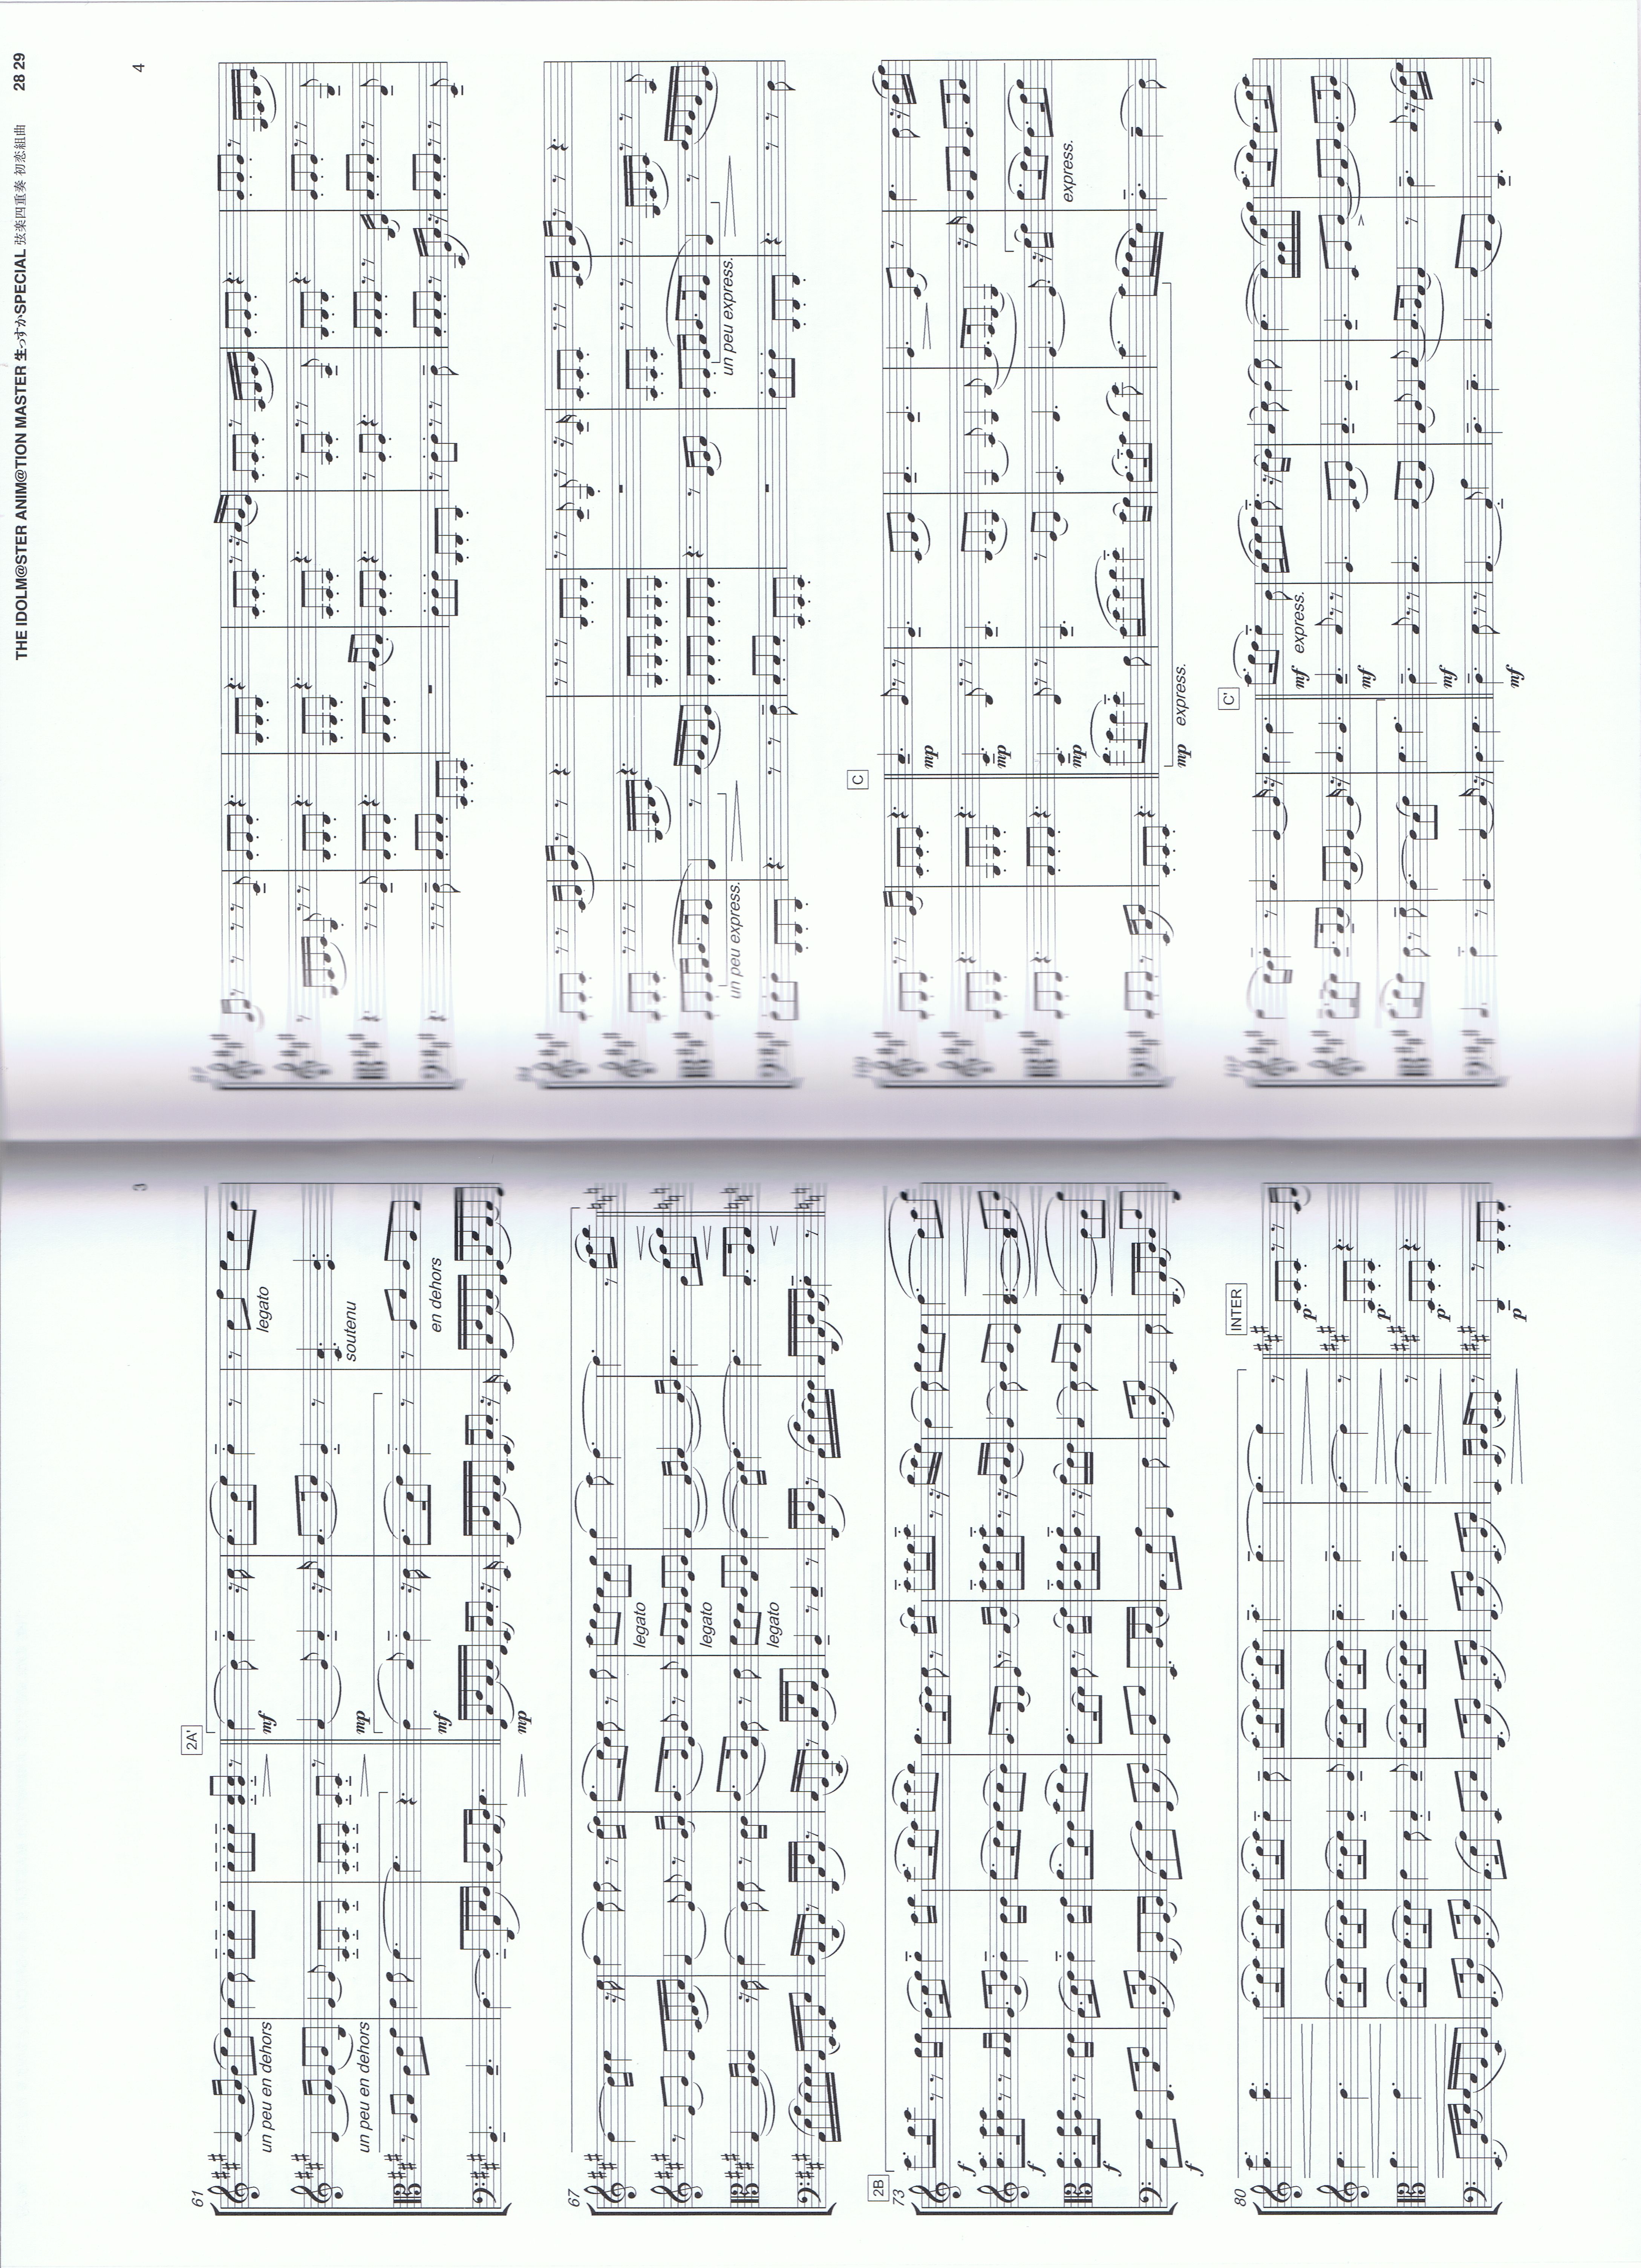 THE IDOLM@STER ANIM@TION MASTER 生っすかSPECIAL 弦楽四重奏 初恋組曲 28 29
3
61
un peu en dehors
un peu en dehors
2A'
mf
mp
mf
mp
legato
soutenu
en dehors
67
legato
legato
legato
2B
73
f
f
f
f
80
INTER
p
p
p
p
4
un peu express.
un peu express.
C
mp
mp
mp
mp express.
express.
C'
mf express.
mf
mf
mf